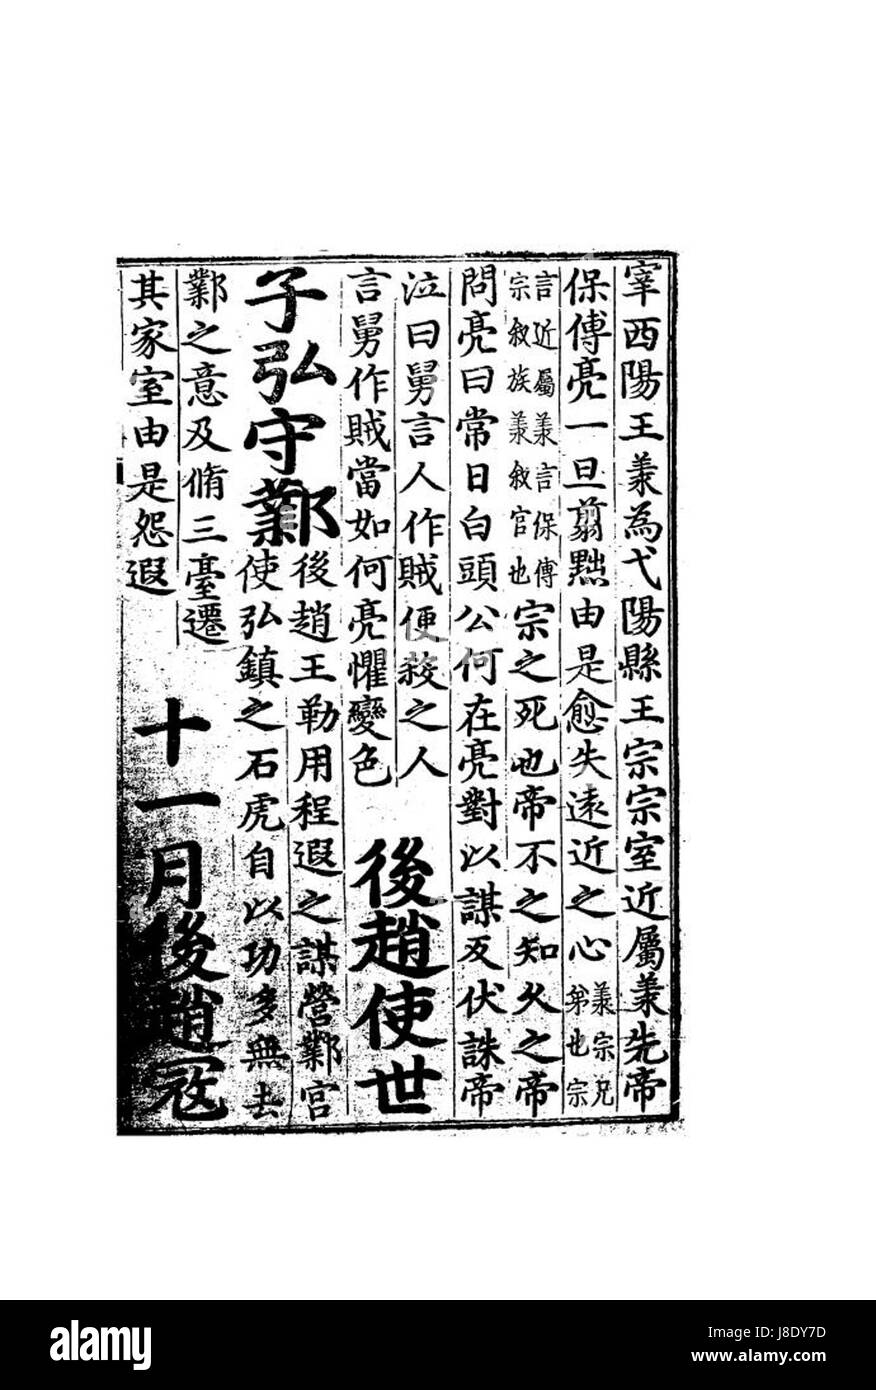 宰西陽王羕為弋陽縣王宗宗室近屬羕先帝
保傅亮一旦翦黜由是愈失遠近之心羕宗兄
弟也宗
言近屬羕言保傅
宗敘族羕敘官也
宗之死也帝不之知久之帝
問亮曰常日白頭公何在亮對以謀反伏誅帝
泣曰舅言人作賊便殺之人
言舅作賊當如何亮懼變色
後趙使世
子弘守鄴
後趙王勒用程遐之謀營鄴宮
使弘鎮之石虎自以功多無去
鄴之意及脩三臺遷
其家室由是怨遐
十一月後趙寇
alamy
Image ID: J8DY7D
www.alamy.com